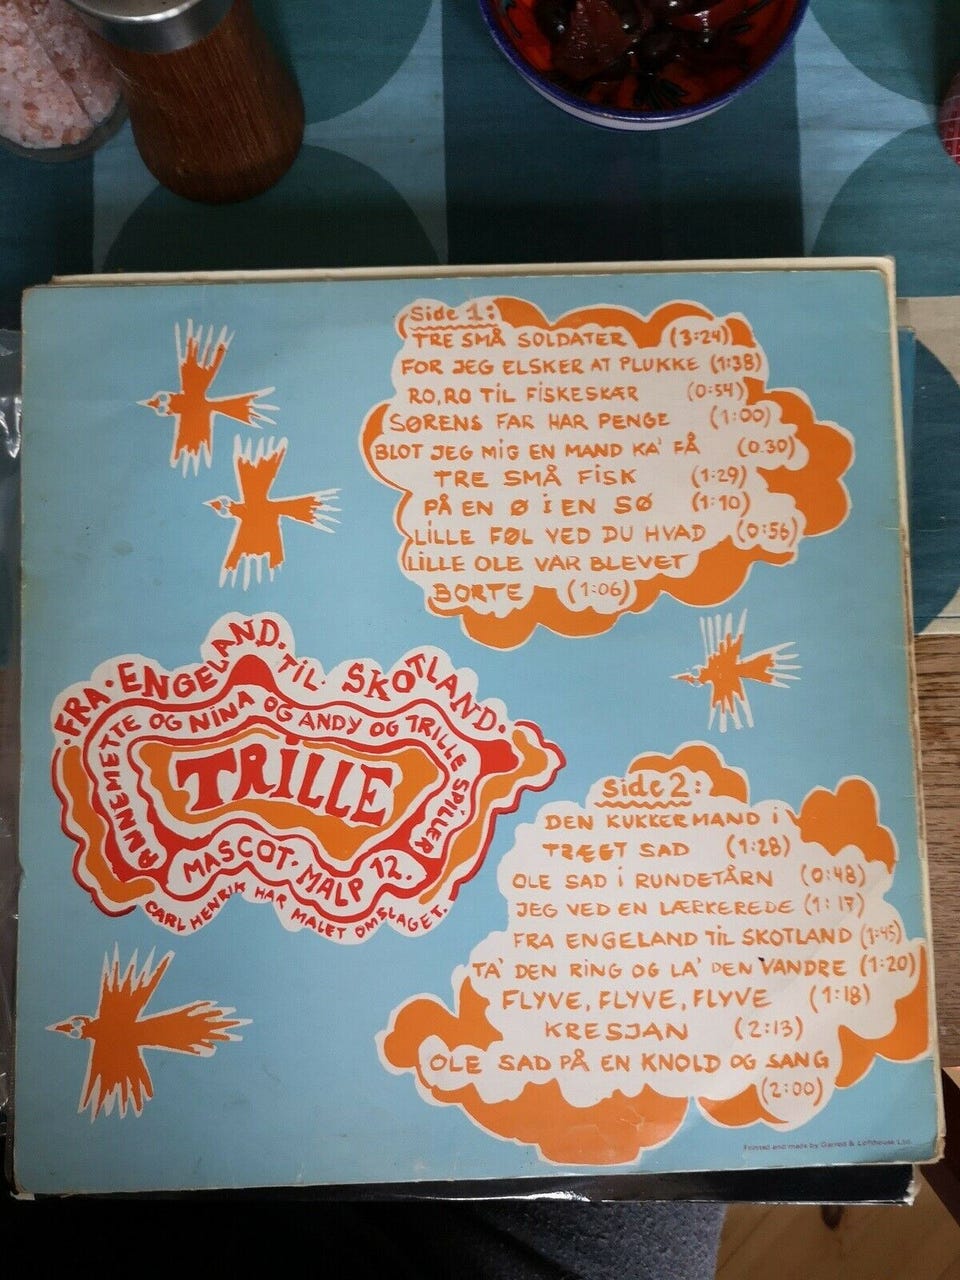 Side 1:
TRE SMÅ SOLDATER (3:24)
FOR JEG ELSKER AT PLUKKE (1:38)
RO, RO TIL FISKESKÆR (0:54)
SØRENS FAR HAR PENGE (1:00)
BLOT JEG MIG EN MAND KA' FÅ (0.30)
TRE SMÅ FISK (1:29)
PÅ EN Ø I EN SØ (1:10)
LILLE FØL VED DU HVAD (0:56)
LILLE OLE VAR BLEVET
BORTE (1:06)
.FRA.ENGELAND.TIL.SKOTLAND.
ANNEMETTE OG NINA OG ANDY OG TRILLE SPILLER
TRILLE
MASCOT. MALP 12.
CARL HENRIK HAR MALET OMSLAGET.
Side 2:
DEN KUKKERMAND I
TRÆET SAD (1:28)
OLE SAD I RUNDETÅRN (0:48)
JEG VED EN LÆRKEREDE (1:17)
FRA ENGELAND TIL SKOTLAND (1:45)
TA' DEN RING OG LA' DEN VANDRE (1:20)
FLYVE, FLYVE, FLYVE (1:18)
KRESJAN (2:13)
OLE SAD PÅ EN KNOLD OG SANG
(2:00)
Printed and made by Garrod & Lofthouse Ltd.